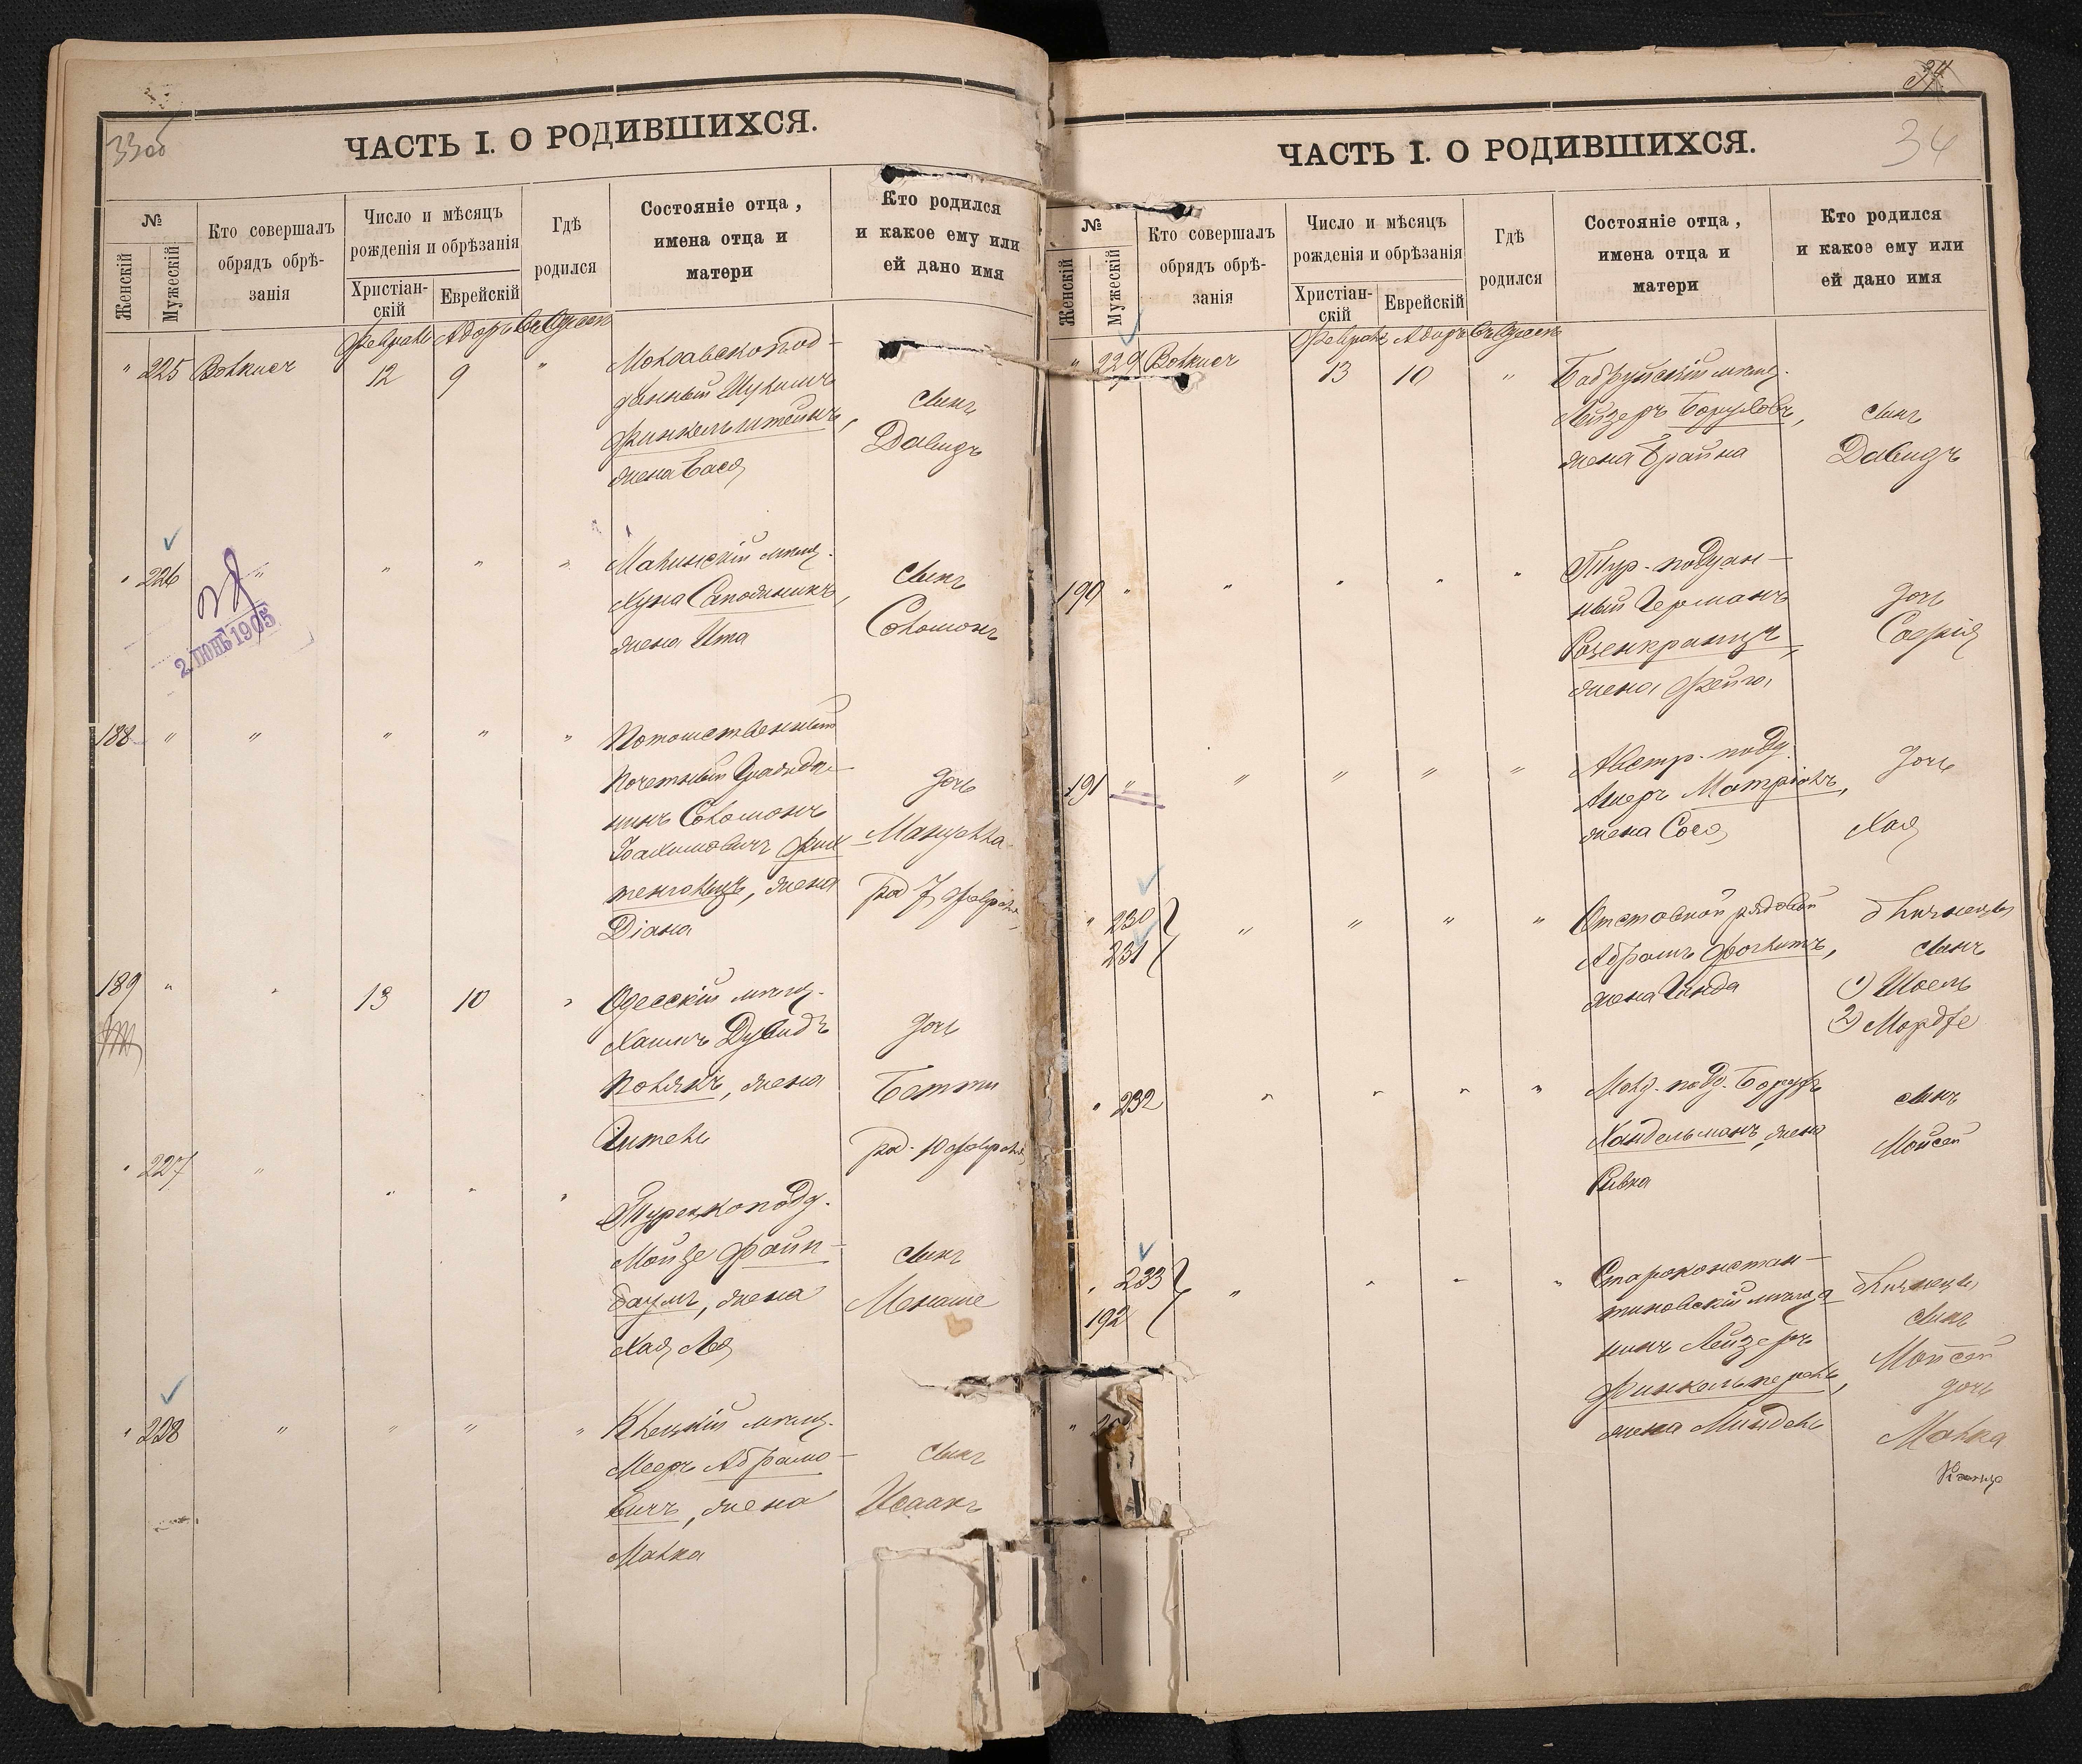 33об
ЧАСТЬ I. О РОДИВШИХСЯ.
№
Женскій
Мужескій
Кто совершалъ
обрядъ обрѣ-
занія
Число и мѣсяцъ
рожденія и обрѣзанія
Христіан-
скій
Еврейскій
Гдѣ
родился
Состояніе отца,
имена отца и
матери
Кто родился
и какое ему или
ей дано имя
Февраль Адоръ Въ Одессѣ
" 225 Волкисъ 12 9 "
Молдавскопод-
данный Шулимъ
Финкельштейнъ,
жена Бася
сынъ
Давидъ
" 226 " " " "
2 ІЮНЬ 1905
мѣщ.
Хуна Сапожникъ,
жена Ита
сынъ
Соломонъ
188 " " " " "
Потомственный
Почетный Гражда-
нинъ Соломонъ
жена
Діана
дочь
род 7 февраля
189 " " 13 10 "
Одесскій мѣщ.
Хаимъ Дувидъ
Полякъ, жена
Гитель
дочь
Бетти
род. 10 февраля
" 227 " " " "
Турецкоподд.
Мойше Файн-
баумъ, жена
Хая Лея
сынъ
Менаше
" 228 " " " "
Клецкій мѣщ.
Мееръ Абрамо-
вичъ, жена
Малка
сынъ
Исаакъ
34
34
ЧАСТЬ I. О РОДИВШИХСЯ.
№
Женскій
Мужескій
Кто совершалъ
обрядъ обрѣ-
занія
Число и мѣсяцъ
рожденія и обрѣзанія
Христіан-
скій
Еврейскій
Гдѣ
родился
Состояніе отца,
имена отца и
матери
Кто родился
и какое ему или
ей дано имя
Февраль Адоръ Въ Одессѣ
" 229 Волкисъ 13 10 "
Бобруйскій мѣщ.
Лейзеръ
жена Брайна
сынъ
Давидъ
190 " " " " "
Тур. поддан-
ный Германъ
Розенкранцъ,
жена Фейга
дочь
Софія
191 " " " " "
Австр. подд.
Ашеръ
жена Сося
дочь
Хая
" 230
231 " " " "
Отставной рядовой
Абрамъ
жена Гинда
близнецы
сынъ
1) Шоель
2) Мордхе
" 232 " " " "
Молд. подд. Борухъ
Хандельманъ, жена
Ривка
сынъ
Мойсей
" 233
192 " " " "
Староконстан-
тиновскій мѣща-
нинъ Лейзеръ
жена Миндель
близнецы
сынъ
Мойсей
дочь
Малка